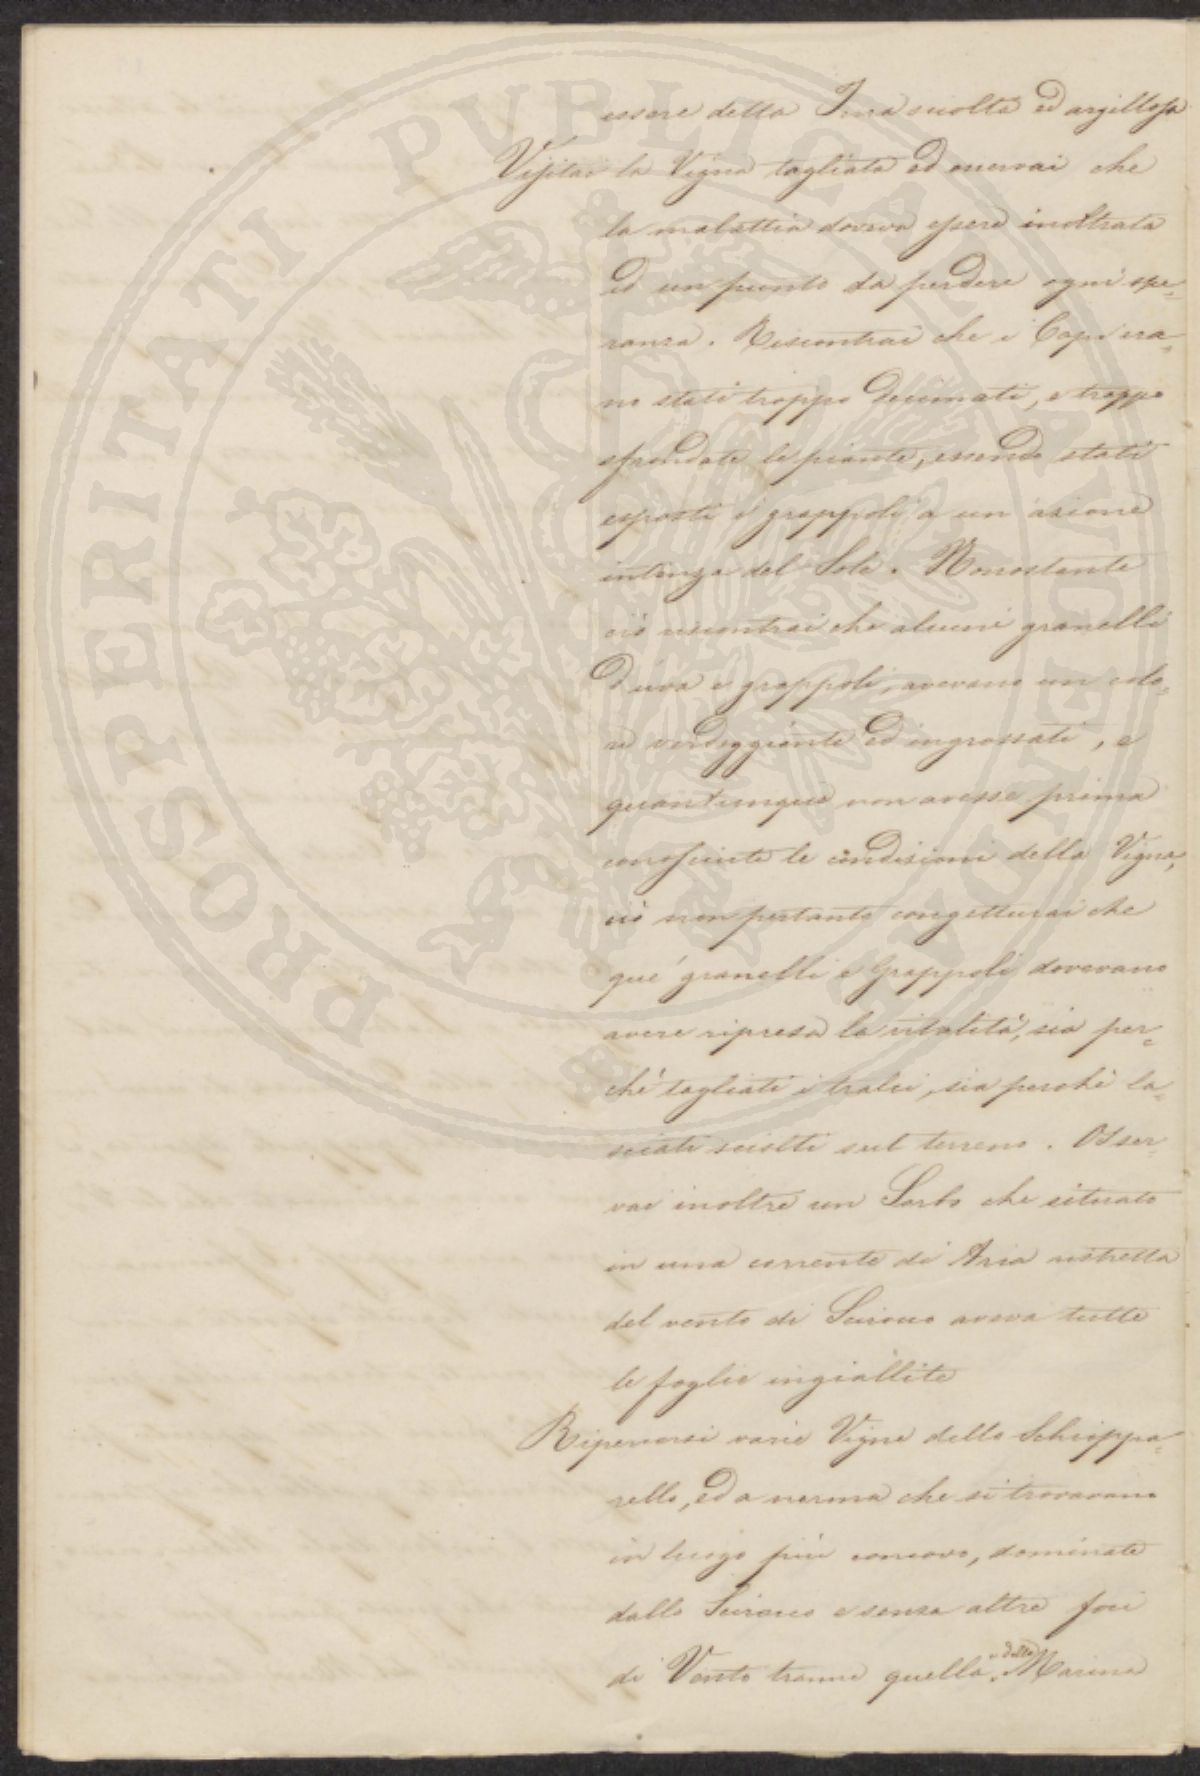 essere della Ima sciolta ed argillosa
Visitai la Vigna tagliata ed osservai che
la malattia doveva essere inoltrata
ad un punto da perdere ogni spe=
ranza. Riscontrai che i Capi era=
no stati troppo decimati, e troppo
sfrondate le piante, essendo stati
esposti i grappoli a un'azione
intensa del Sole. Nonostante
ciò riscontrai che alcuni granelli
d'uva e grappoli, avevano un colo=
re verdeggiante ed ingrossati, e
quantunque non avesse prima
conosciute le condizioni della Vigna,
ciò non pertanto congetturai che
que' granelli e Grappoli dovevano
avere ripresa la vitalità, sia per=
chè tagliati i tralci, sia perchè la=
sciati sciolti sul terreno. Osser=
vai inoltre un Sorbo che situato
in una corrente di Aria ristretta
del vento di Scirocco aveva tutte
le foglie ingiallite
Ripercorsi varie Vigne dello Schioppa=
rello, ed a norma che si trovavano
in luogo più concavo, dominate
dallo Scirocco e senza altre foci
di Vento tranne quella della Marina
PROSPERITATI PUBLICAE AUGENDAE